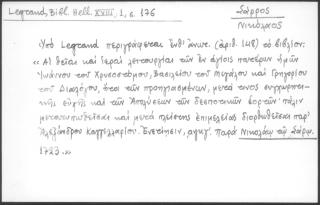 Legrand, Bibl. Hell. XVIII, 1, σ. 176
Σάρρος
Νικόλαος
Ὑπὸ Legrand περιγράφεται ἔνθ' ἄνωτ. (ἀριθ. 148) τὸ βιβλίον:
«Αἱ θεῖαι καὶ ἱεραὶ λειτουργίαι τῶν ἐν ἁγίοις πατέρων ἡμῶν
Ἰωάννου τοῦ Χρυσοστόμου, Βασιλείου τοῦ Μεγάλου καὶ Γρηγορίου
τοῦ Διαλόγου, ἤτοι τῶν προηγιασμένων, μετά τινος συγχωρητι-
κῆς εὐχῆς καὶ τῶν Ἀπολύσεων τῶν δεσποτικῶν ἑορτῶν· πάλιν
μετατυπωθεῖσαι καὶ μετὰ πλείστης ἐπιμελείας διορθωθεῖσαι παρ'
Ἀλεξάνδρου Καγκελλαρίου. Ἐνετίησιν, αψκγ΄. παρὰ Νικολάῳ τῷ Σάρῳ.
1723.»